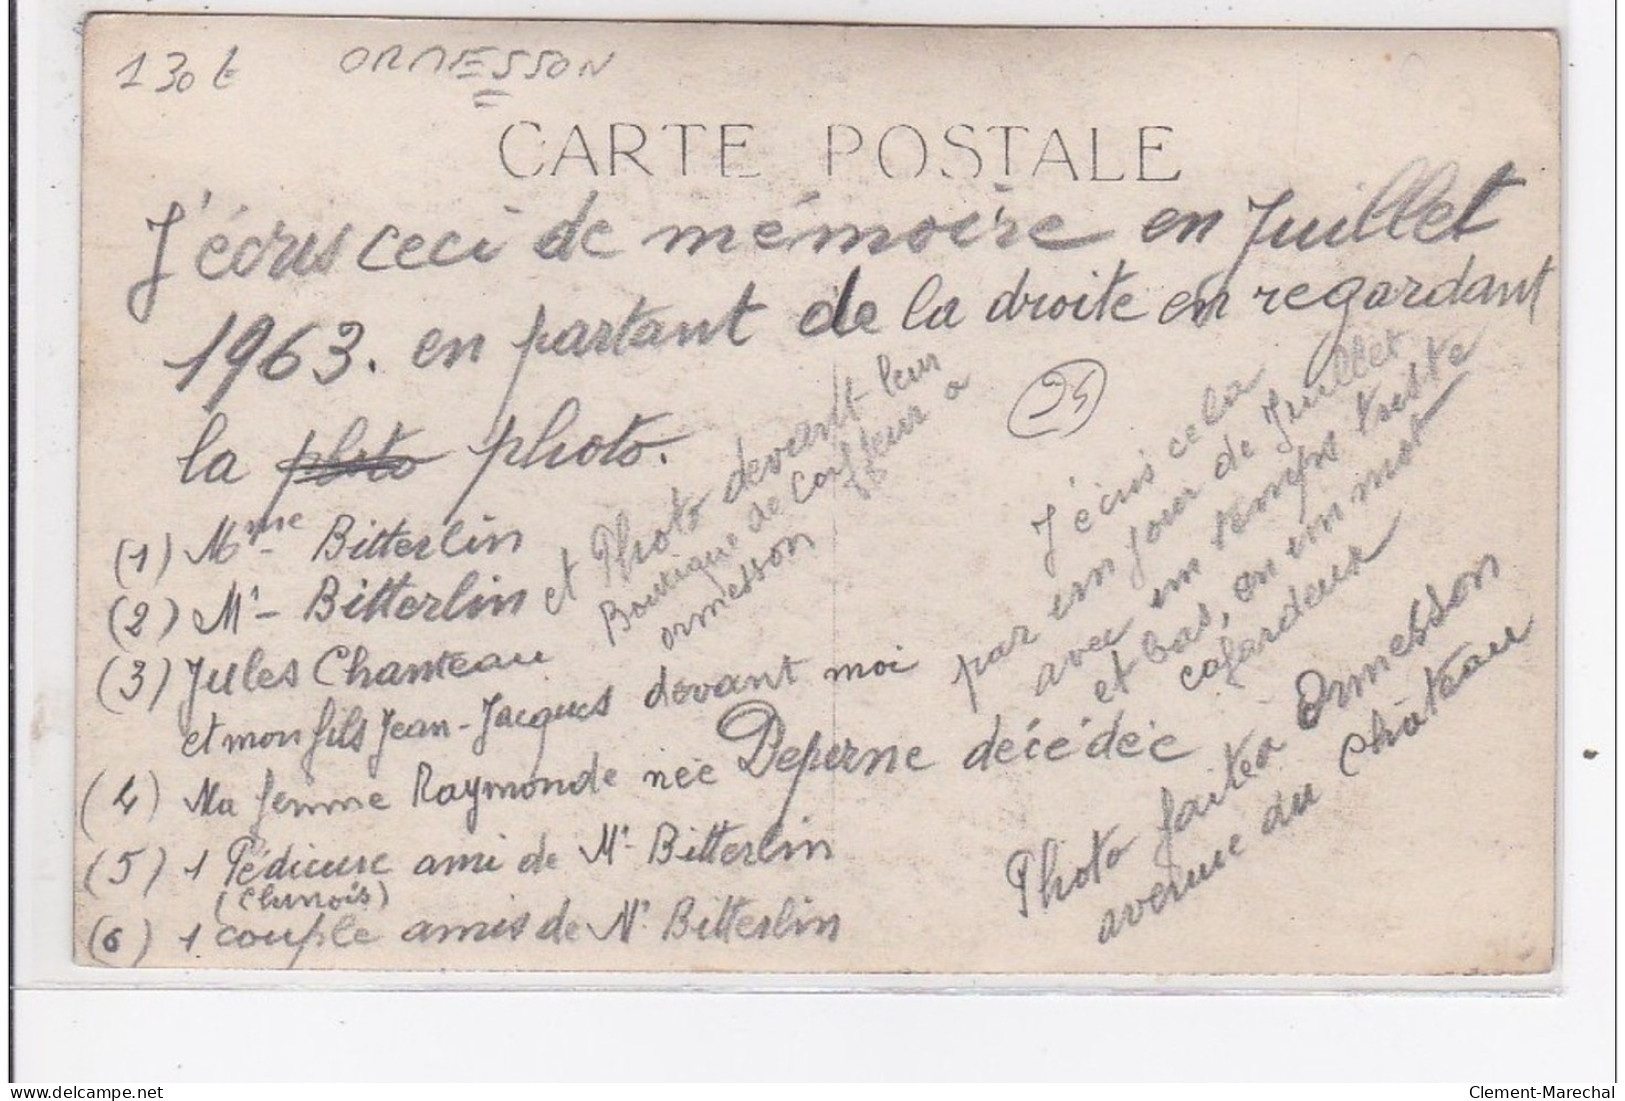 130 €
ORMESSON
CARTE POSTALE
J'écris ceci de mémoire en Juillet
1963. en partant de la droite en regardant
la photo photo.
(1) Mme Bitterlin
(2) Mr- Bitterlin
et Photo devant leur
Boutique de Coiffeur a
ormesson
(3) Jules Chanteau
et mon fils Jean-Jacques devant moi
(4) Ma femme Raymonde née Deperne décédée
(5) 1 Pédicure ami de Mr Bitterlin
(Chinois)
(6) 1 couple amis de Mr Bitterlin
24
J'écris cela
par un jour de Juillet
avec un temps triste
et bas, en un mot
cafardeux
Photo faite a Ormesson
avenue du Château
delcampe.net
Clement-Marechal